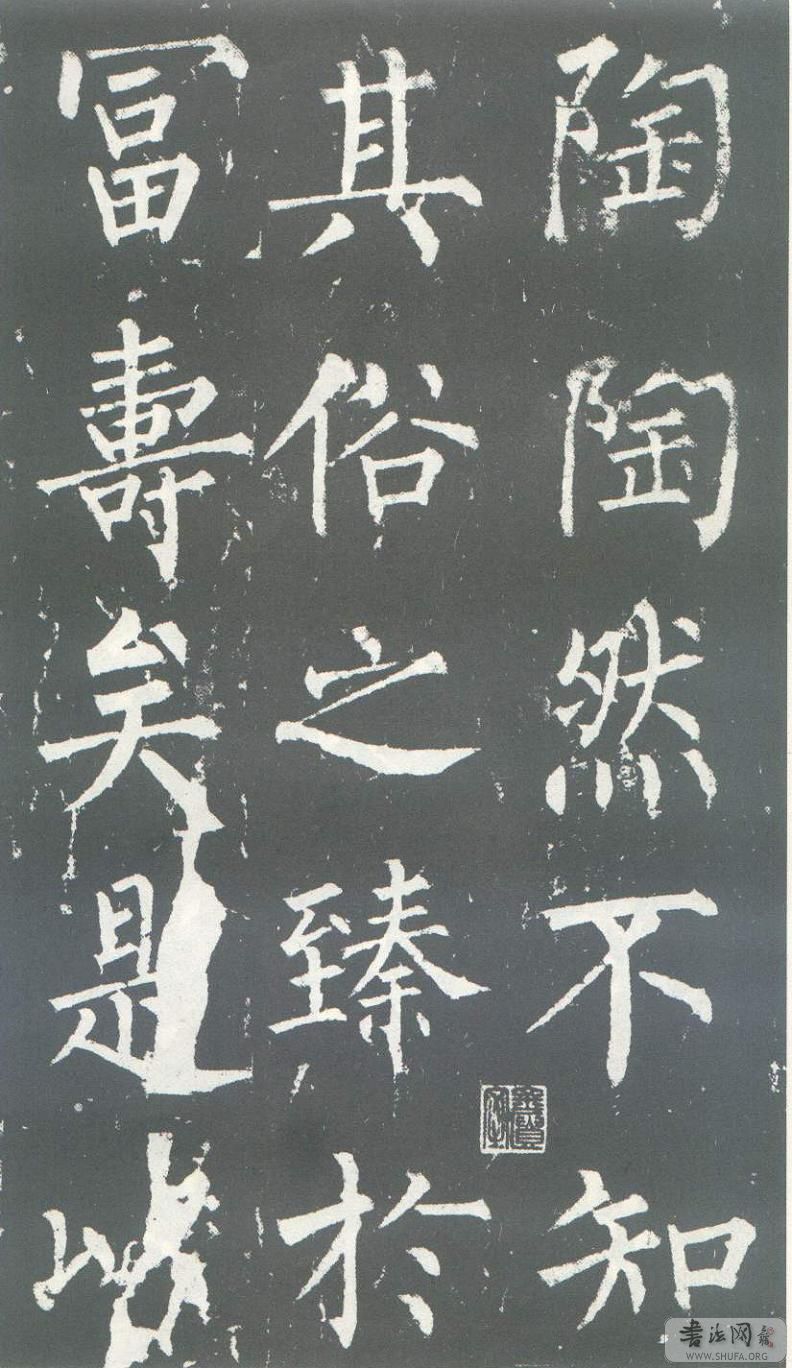 陶陶然不知
其俗之臻於
冨壽矣是
書法网
WWW.SHUFA.ORG